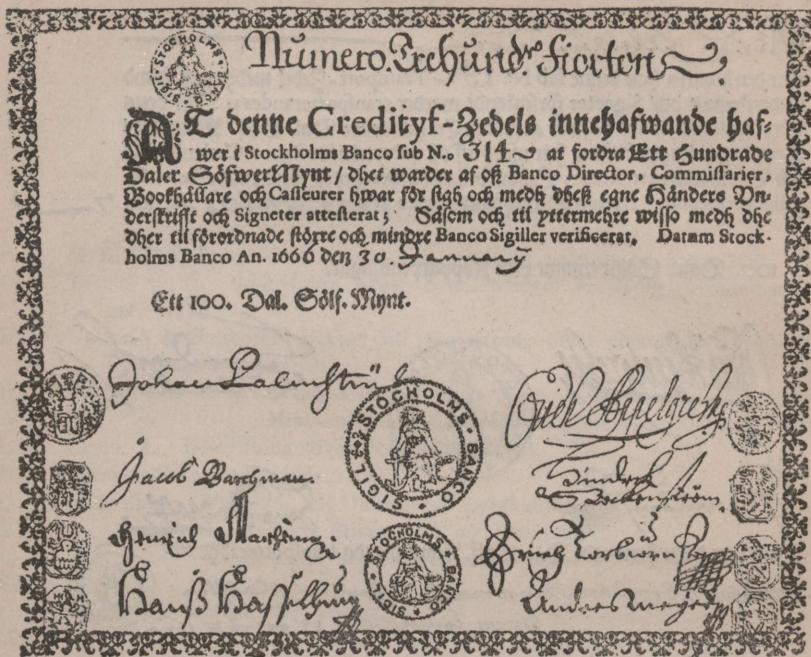 Numero. Trehundr. Fiorton
AT denne Credityf-Zedels innehafwande haf-
wer i Stockholms Banco sub N.o 314 at fordra Ett Hundrade
Daler SöfwerMynt / dhet warder af oß Banco Director, Commissarier,
Bookhållare och Casseurer hwar för sigh och medh dheß egne Händers Vn-
derskrifft och Signeter attesterat; Såsom och til yttermehre wisso medh dhe
dher til förordnade större och mindre Banco Sigiller verificerat. Datam Stock-
holms Banco An. 1666 den 30. January
Ett 100. Dal. Sölf. Mynt.
Johan Palmstruch
SIGIL STOCHOLMS BANCO
Jacob Barchman.
Henrich
SIGIL STOCHOLMS BANCO
Hanß
Anders Meijer